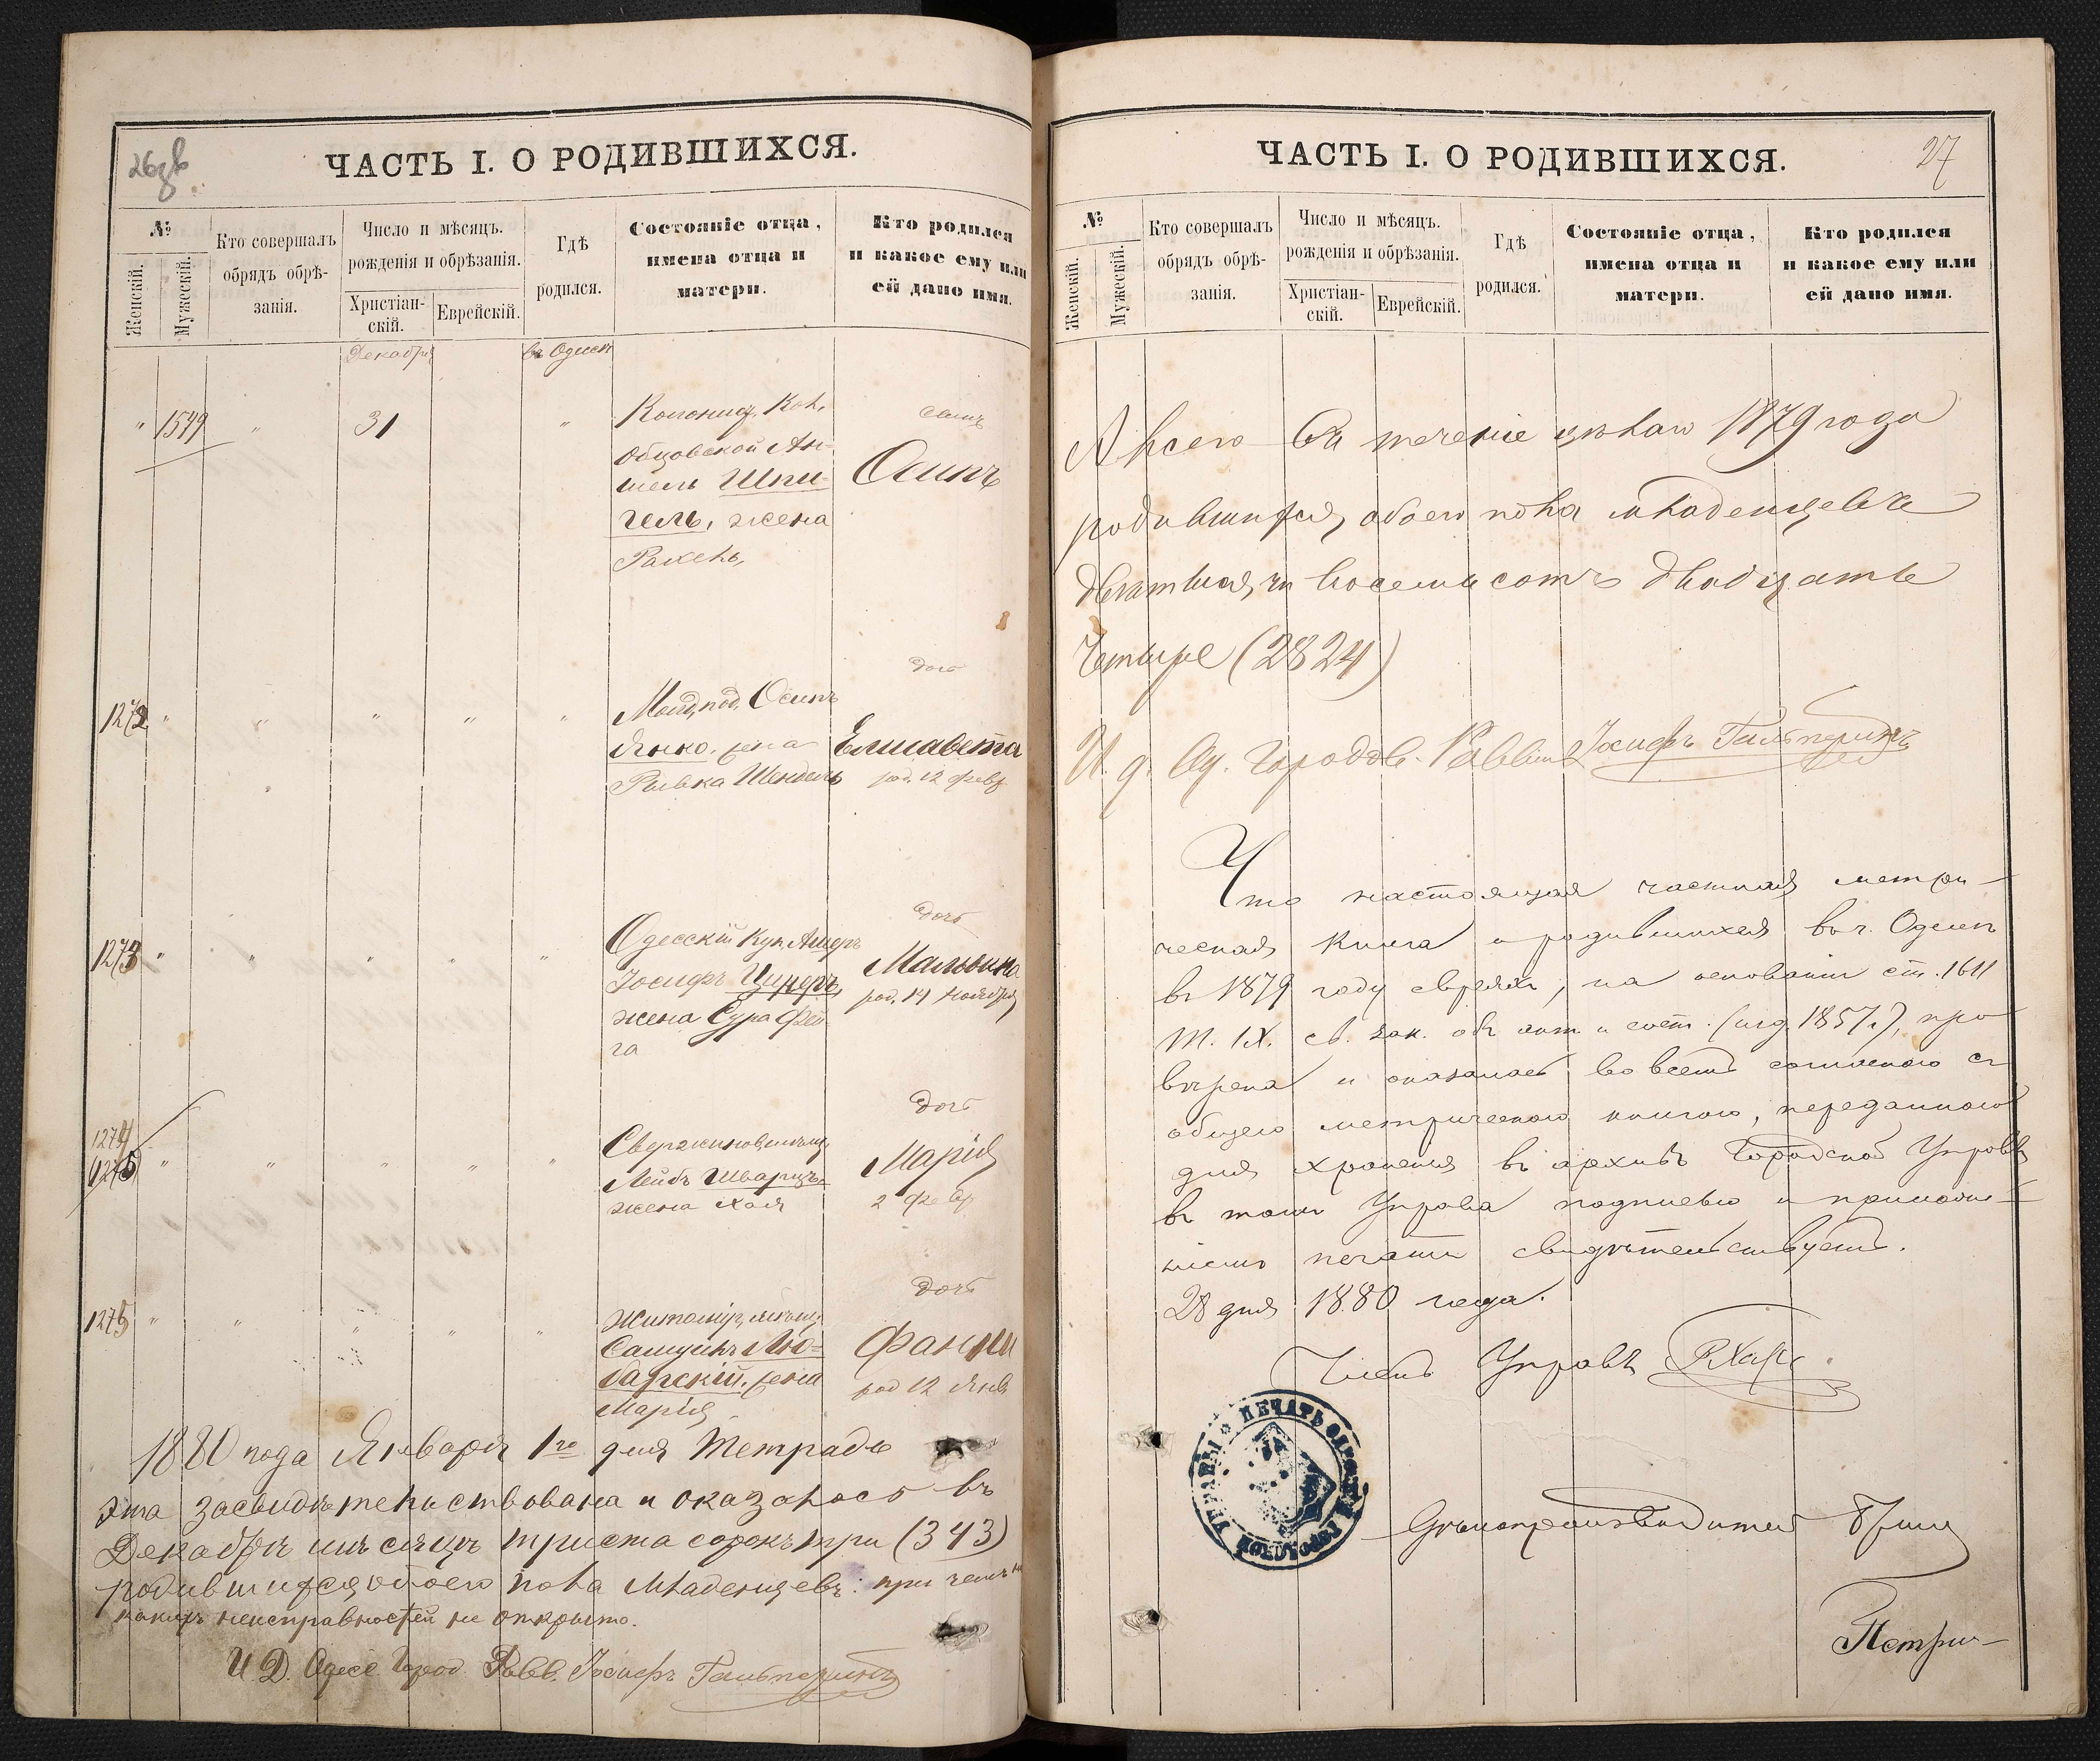 26зв
ЧАСТЬ I. О РОДИВШИХСЯ.
№
Женскій.
Мужескій.
Кто совершалъ
обрядъ обрѣ-
занія.
Число и мѣсяцъ.
рожденія и обрѣзанія.
Христіан-
скій.
Еврейскій.
Гдѣ
родился.
Состояніе отца,
имена отца и
матери.
Кто родился
и какое ему или
ей дано имя.
Декабря
въ Одессѣ
" 1549 " 31 "
Колонис. Кол.
Обцовской Ан-
шель Шпи-
гель, жена
Рахель,
сынъ
Осипъ
1272 " " " " "
Молд. под. Осипъ
Янко, жена
Ривка Шендель
дочь
Елисавета
род. 12 февр
1273 " " " " "
Одесскій Куп. Ашеръ
Іосифъ Цинеръ,
жена Сура Фей
га
дочь
Мальвина
род. 14 Ноября
1274
1275 " " " " "
мѣщ.
Лейбъ Шварцъ
жена Хая
дочь
Марія
2 февр
1275 " " " " "
Житомир, мѣщ.
Самуилъ Лю-
барскій, жена
Марія
дочь
Фанни
род 12 Янв
1880 года Января 1го дня Тетрадь
эта засвидѣтельствована и оказалось въ
Декабрѣ мѣсяцѣ триста сорокъ три (343)
родившихся обоего пола младенцевъ: при чемъ ни
какихъ неисправностей не открыто.
И. Д. Одесс. Город. Равв. Іосифъ Гальперинъ
ЧАСТЬ I. О РОДИВШИХСЯ.
27
№
Женскій.
Мужескій.
Кто совершалъ
обрядъ обрѣ-
занія.
Число и мѣсяцъ.
рожденія и обрѣзанія.
Христіан-
скій.
Еврейскій.
Гдѣ
родился.
Состояніе отца,
имена отца и
матери.
Кто родился
и какое ему или
ей дано имя.
А всего въ теченіе цѣлаго 1879 года
родившихся обоего пола младенцевъ
двѣ тысячи восемьсотъ двадцать
четыре (2824)
И. д. Од. Городов. Раввина Іосифъ Гальперинъ
Что настоящая частная метри-
ческая книга о родившихся въ г. Одессѣ
въ 1879 году евреяхъ, на основаніи ст. 1611
т. IX. св. зак. объ сост. (изд. 1857 г.), про
вѣрена и оказалась во всемъ согласною съ
общею метрическою книгою, переданною
для храненія въ архивъ Городской Управы
въ томъ Управа подписью и приложе-
ніемъ печати свидѣтельствуетъ.
28 дня 1880 года.
Членъ Управы
ПЕЧАТЬ ОДЕССКОЙ ГОРОДСКОЙ УПРАВЫ
Дѣлопроизводитель